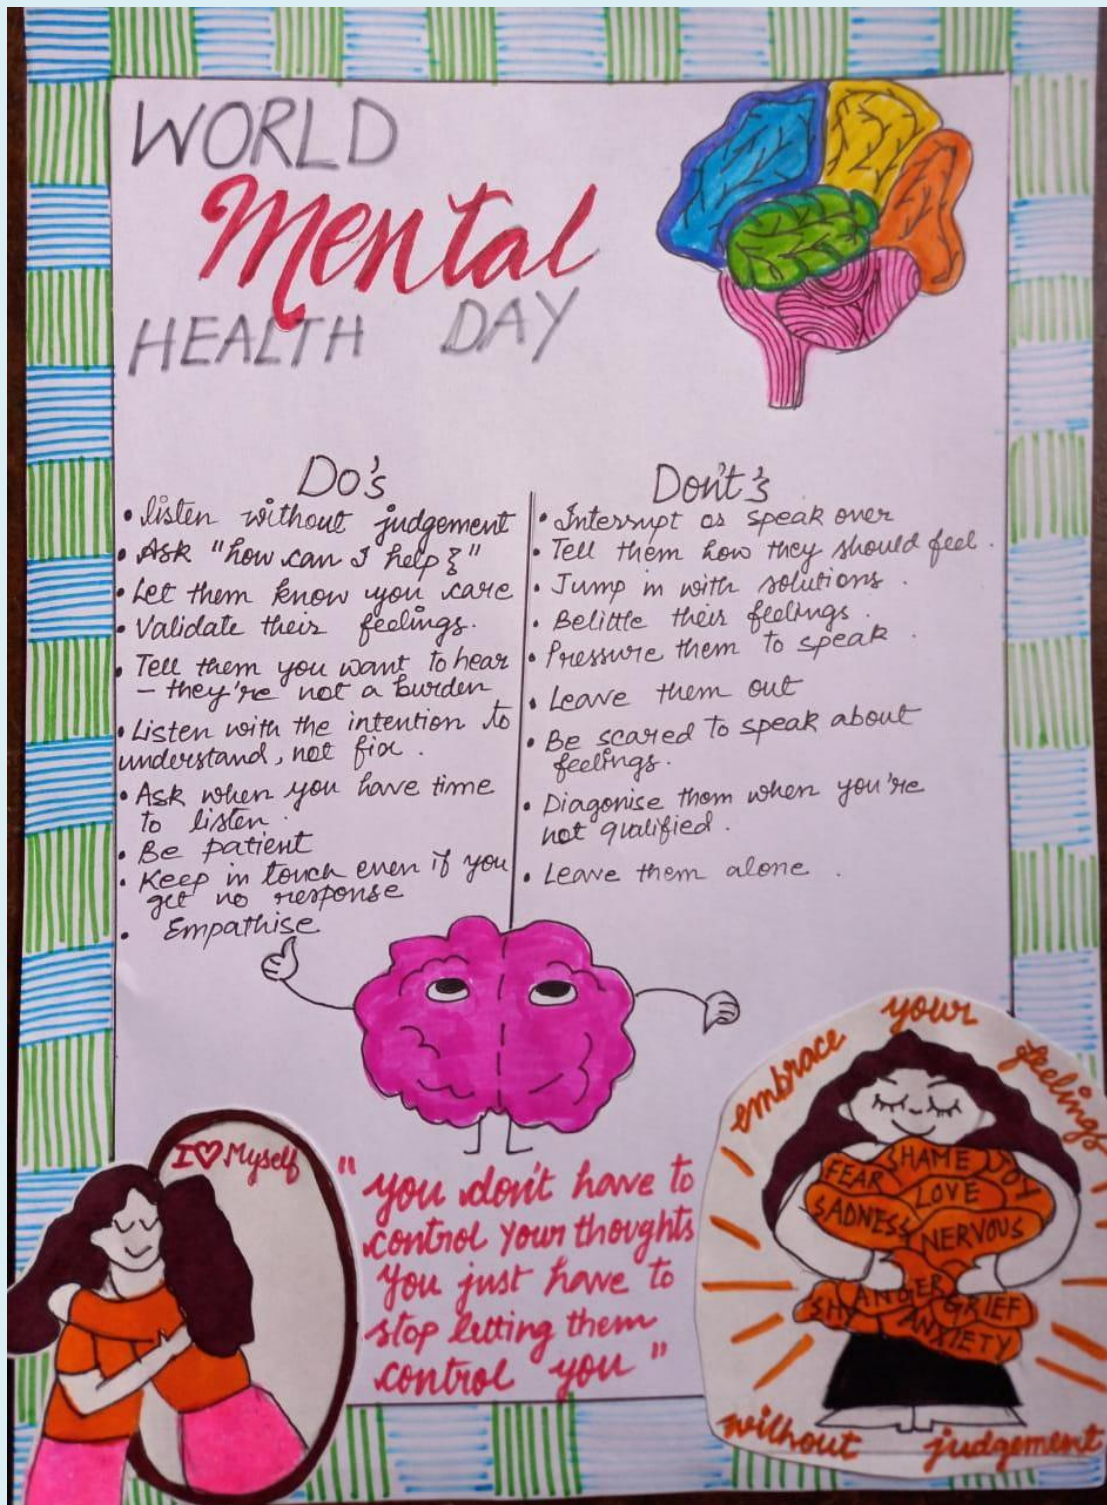 WORLD
Mental
HEALTH DAY
Do's
• listen without judgement
• Ask "how can I help?"
• Let them know you care
• Validate their feelings.
• Tell them you want to hear
– they're not a burden
• Listen with the intention to
understand, not fix.
• Ask when you have time
to listen.
• Be patient
• Keep in touch even if you
get no response
• Empathise
Don't's
• Interrupt or speak over
• Tell them how they should feel.
• Jump in with solutions.
• Belittle their feelings.
• Pressure them to speak.
• Leave them out
• Be scared to speak about
feelings.
• Diagonise them when you're
not qualified.
• Leave them alone.
I ♡ Myself
"you don't have to
control your thoughts
You just have to
stop letting them
control you"
embrace your feelings
SHAME
FEAR
JOY
LOVE
SADNESS
NERVOUS
ANGER
SHY
GRIEF
ANXIETY
without judgement